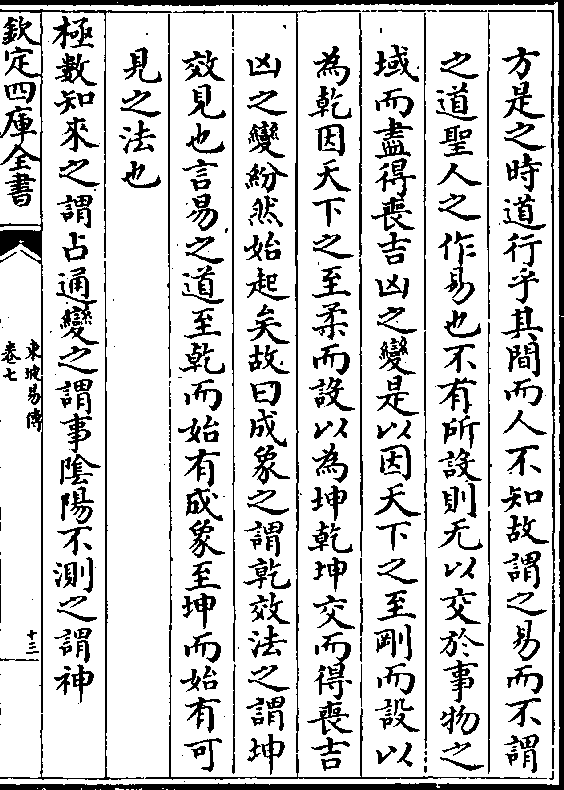 方是之時道行乎其間而人不知故謂之易而不謂
之道聖人之作易也不有所設則无以交於事物之
域而盡得喪吉凶之變是以因天下之至剛而設以
為乾因天下之至柔而設以為坤乾坤交而得喪吉
凶之變紛然始起矣故曰成象之謂乾效法之謂坤
效見也言易之道至乾而始有成象至坤而始有可
見之法也
極數知來之謂占通變之謂事隂陽不測之謂神
欽定四庫全書
東坡易傳
卷七
十三